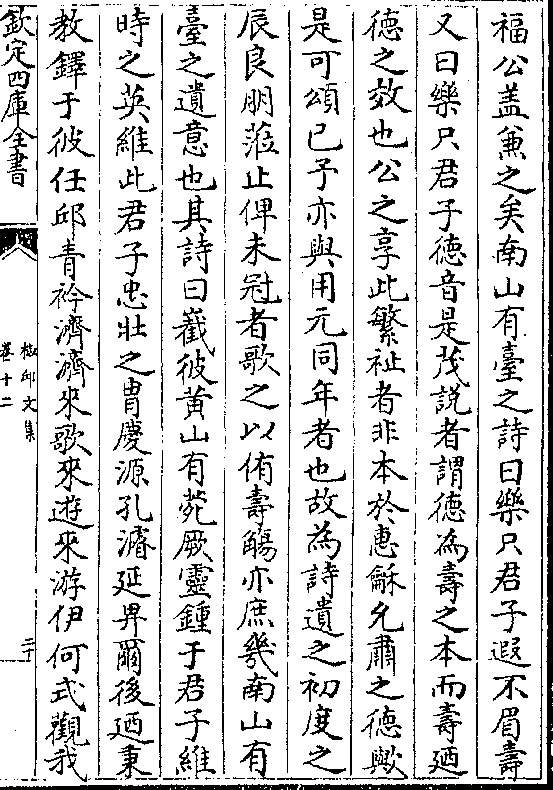 福公盖兼之矣南山有臺之詩曰樂只君子遐不眉壽
又曰樂只君子德音是茂説者謂德為壽之本而壽廼
德之效也公之享此繁祉者非本於惠龢允肅之德歟
是可頌已予亦與用元同年者也故為詩遺之初度之
辰良朋蒞止俾未冠者歌之以侑壽觴亦庶幾南山有
臺之遺意也其詩曰巀彼黄山有菀厥靈鍾于君子維
時之英維此君子忠壯之胄慶源孔濬延畀爾後廼秉
教鐸于彼任邱青衿濟濟來歌來遊來游伊何式觀我
欽定四庫全書
椒邱文集
卷十二
二十